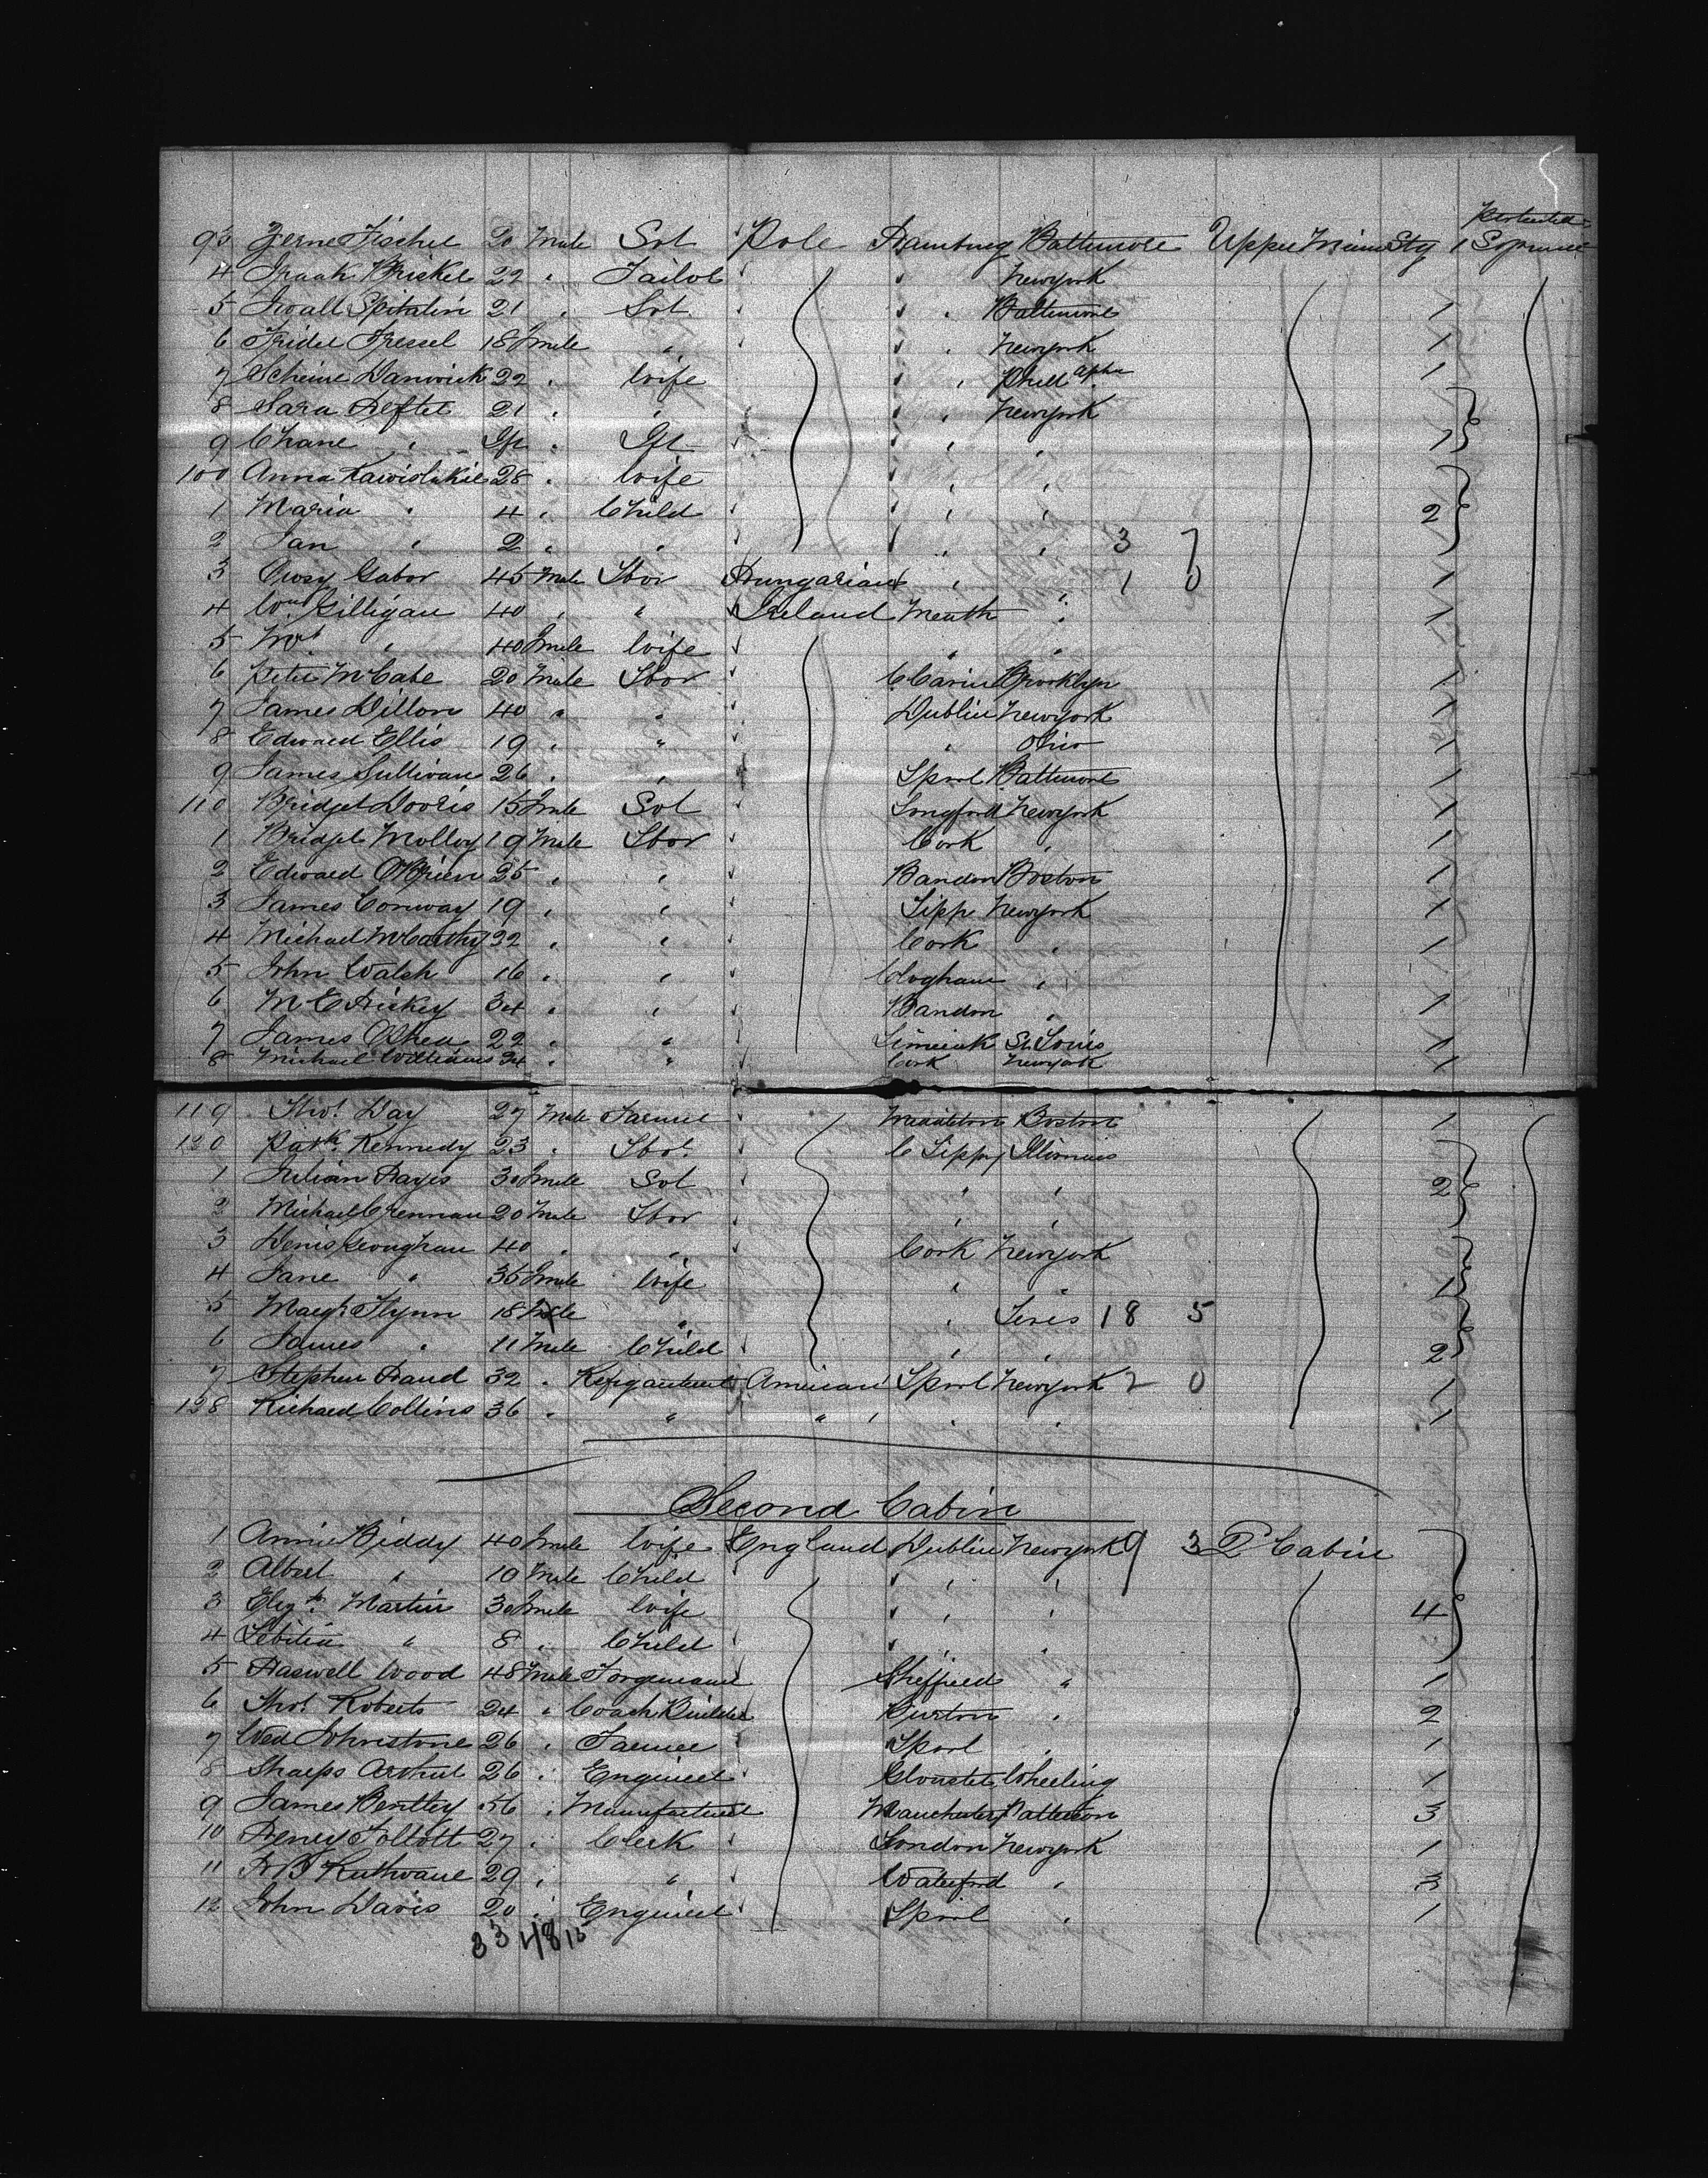 Protracted
93 Zerne Fischel 20 Male Svt Pole Hamburg Baltimore Upper Main Stg 1 Sojourner
4 Isaak Briskel 22 " Tailor Newyork
5 Iwall Spitalin 21 " Svt " Baltimore 1
6 Fridel Fressel 18 fmle " " Newyork 1
7 Scheine Danwick 22 " Wife " Phill apha 1
8 Sara Heftel 21 " " " Newyork
9 Chane " Inft " Inft " " 1
100 Anna 28 " Wife " "
1 Maria " 4 " Child " " 2
2 Jan " 2 " " " " 3 7
3 Gabor 45 Male Lbor Hungarian " " 1 0 1
4 Wm Gilligan 40 " " Ireland Meath " 1
5 Mrs " 40 fmle Wife " "
6 Peter McCabe 20 Male Lbor Brooklyn 1
7 James Dillon 40 " " Dublin Newyork 1
8 Edward Ellis 19 " " " Ohio 1
9 James Sullivan 26 " " Lpool Baltimore 1
110 Bridget Dooris 15 fmle Svt Longford Newyork 1
1 Bridget Molloy 19 Male Lbor Cork " 1
2 Edward OBrien 25 " " Bandon Boston 1
3 James Conway 19 " " Tipp Newyork 1
4 Michael McCarthy 22 " " Cork " 1
5 John Walsh 16 " " Cloghane "
6 M E Hickey 34 " " Bandon " 1
7 James OShea 22 " " Limerick St Louis 1
8 Michael Williams 24 " " Cork Newyork 1
119 Thos Day 27 Male Farmer Middleton Boston 1
120 Patk Kennedy 23 " Lbor C Tipp Illionuis
1 Julian Hayes 30 fmle Svt " " 2
2 Michael Grennan 20 Male Lbor " "
3 Denis Geoughan 40 " " Cork Newyork
4 Jane " 35 fmle Wife " " 1
5 Margt Flynn 18 Male " " 18 5
6 James " 11 Male Child " " 2
7 Stephen Hand 32 " American Lpool Newyork 2 0 1
128 Richard Collins 36 " " " " " 1
Second Cabin
1 Annie Biddy 40 fmle Wife England Dublin Newyork 9 3 2 Cabin
2 Albert " 10 Male Child " "
3 Elizth Martin 30 fmle Wife " " 4
4 Letitia " 8 " Child " "
5 Haswell Wood 48 Male Forgeman Sheffield " 1
6 Thos Roberts 24 " Coach Builder Burton " 2
7 Wm Johnstone 26 " Farmer Lpool " 1
8 Sharps Arthur 26 " Engineer Glouster Wheeling 1
9 James Bentley 56 " Manufacturer Manchester Patterson 3
10 Henry Foltott 27 " Clerk London Newyork 1
11 29 " " Waterford " 3
12 John Davis 20 " Engineer Lpool " 1
33 48 15